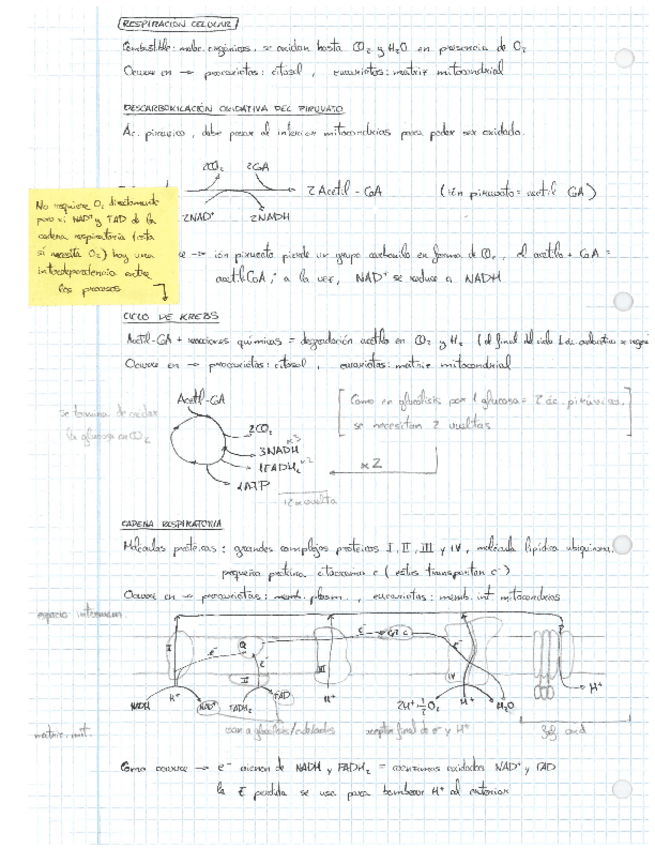 RESPIRACIÓN CELULAR
Combustible: molec. orgánicas, se oxidan hasta CO₂ y H₂O en presencia de O₂
Ocurre en → procariotas: citosol, eucariotas: matriz mitocondrial
DESCARBOXILACIÓN OXIDATIVA DEL PIRUVATO
Ác. pirúvico, debe pasar al interior mitocondrias para poder ser oxidado.
2CO₂ 2CoA
2 Acetil-CoA (ión piruvato = acetil CoA)
2NAD⁺ 2NADH
No requiere O₂ directamente
pero sí NAD⁺ y FAD de la
cadena respiratoria (esta
sí necesita O₂) hay una
interdependencia entre
los procesos
→ ión piruvato pierde un grupo carboxilo en forma de CO₂, el acetilo + CoA =
acetil CoA; a la vez, NAD⁺ se reduce a NADH
CICLO DE KREBS
Acetil-CoA + reacciones químicas = degradación acetilo en CO₂ y H₂ (al final del ciclo
Ocurre en → procariotas: citosol, eucariotas: matriz mitocondrial
Acetil-CoA
se termina de oxidar
la glucosa en CO₂
2CO₂
3NADH x3
1FADH₂ x2
1ATP
x2
Como en glucólisis por 1 glucosa = 2 ác. pirúvicos,
se necesitan 2 vueltas
CADENA RESPIRATORIA
Moléculas protéicas: grandes complejos proteicos I, II, III y IV, molécula lipídica ubiquinona,
pequeña proteína citocromo c (estos transportan e⁻)
Ocurre en → procariotas: memb. plasm., eucariotas: memb. int mitocondrias
espacio intermem.
I Q II III e⁻ e⁻ → cit c e⁻ IV
NADH H⁺ NAD⁺ FADH₂ FAD H⁺ 2H⁺ ½O₂ H⁺ H₂O H⁺
matriz mit.
van a glucólisis/
aceptor final de e⁻ y H⁺
Como ocurre → e⁻ vienen de NADH y FADH₂ = oxidados NAD⁺ y FAD
la E perdida se usa para bombear H⁺ al exterior